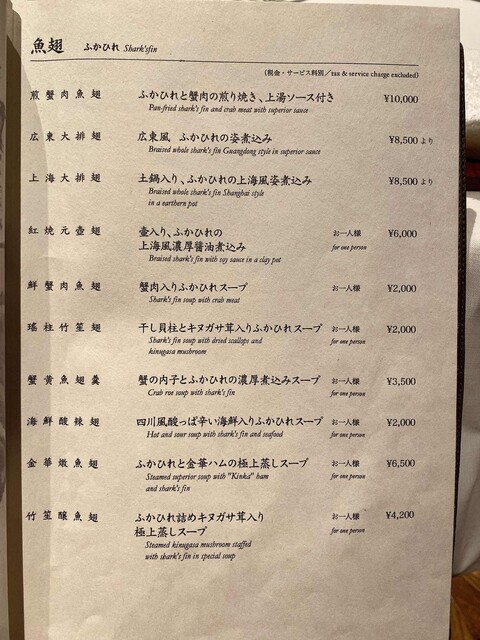 魚翅 ふかひれ Shark'sfin
（税金・サービス料別／tax & service charge excluded）
煎蟹肉魚翅 ふかひれと蟹肉の煎り焼き、上湯ソース付き ¥10,000
Pan-fried shark's fin and crab meat with superior sauce
広東大排翅 広東風 ふかひれの姿煮込み ¥8,500 より
Braised whole shark's fin Guangdong style in superior sauce
上海大排翅 土鍋入り、ふかひれの上海風姿煮込み ¥8,500 より
Braised whole shark's fin Shanghai style
in a earthern pot
紅焼元壺翅 壷入り、ふかひれの お一人様 ¥6,000
上海風濃厚醤油煮込み for one person
Braised shark's fin with soy sauce in a clay pot
鮮蟹肉魚翅 蟹肉入りふかひれスープ お一人様 ¥2,000
Shark's fin soup with crab meat for one person
瑤柱竹笙翅 干し貝柱とキヌガサ茸入りふかひれスープ お一人様 ¥2,000
Shark's fin soup with dried scallops and for one person
kinugasa mushroom
蟹黄魚翅羹 蟹の内子とふかひれの濃厚煮込みスープ お一人様 ¥3,500
Crab roe soup with shark's fin for one person
海鮮酸辣翅 四川風酸っぱ辛い海鮮入りふかひれスープ お一人様 ¥2,000
Hot and sour soup with shark's fin and seafood for one person
金華燉魚翅 ふかひれと金華ハムの極上蒸しスープ お一人様 ¥6,500
Steamed superior soup with "Kinka" ham for one person
and shark's fin
竹笙釀魚翅 ふかひれ詰めキヌガサ茸入り お一人様 ¥4,200
極上蒸しスープ for one person
Steamed kinugasa mushroom staffed
with shark's fin in special soup